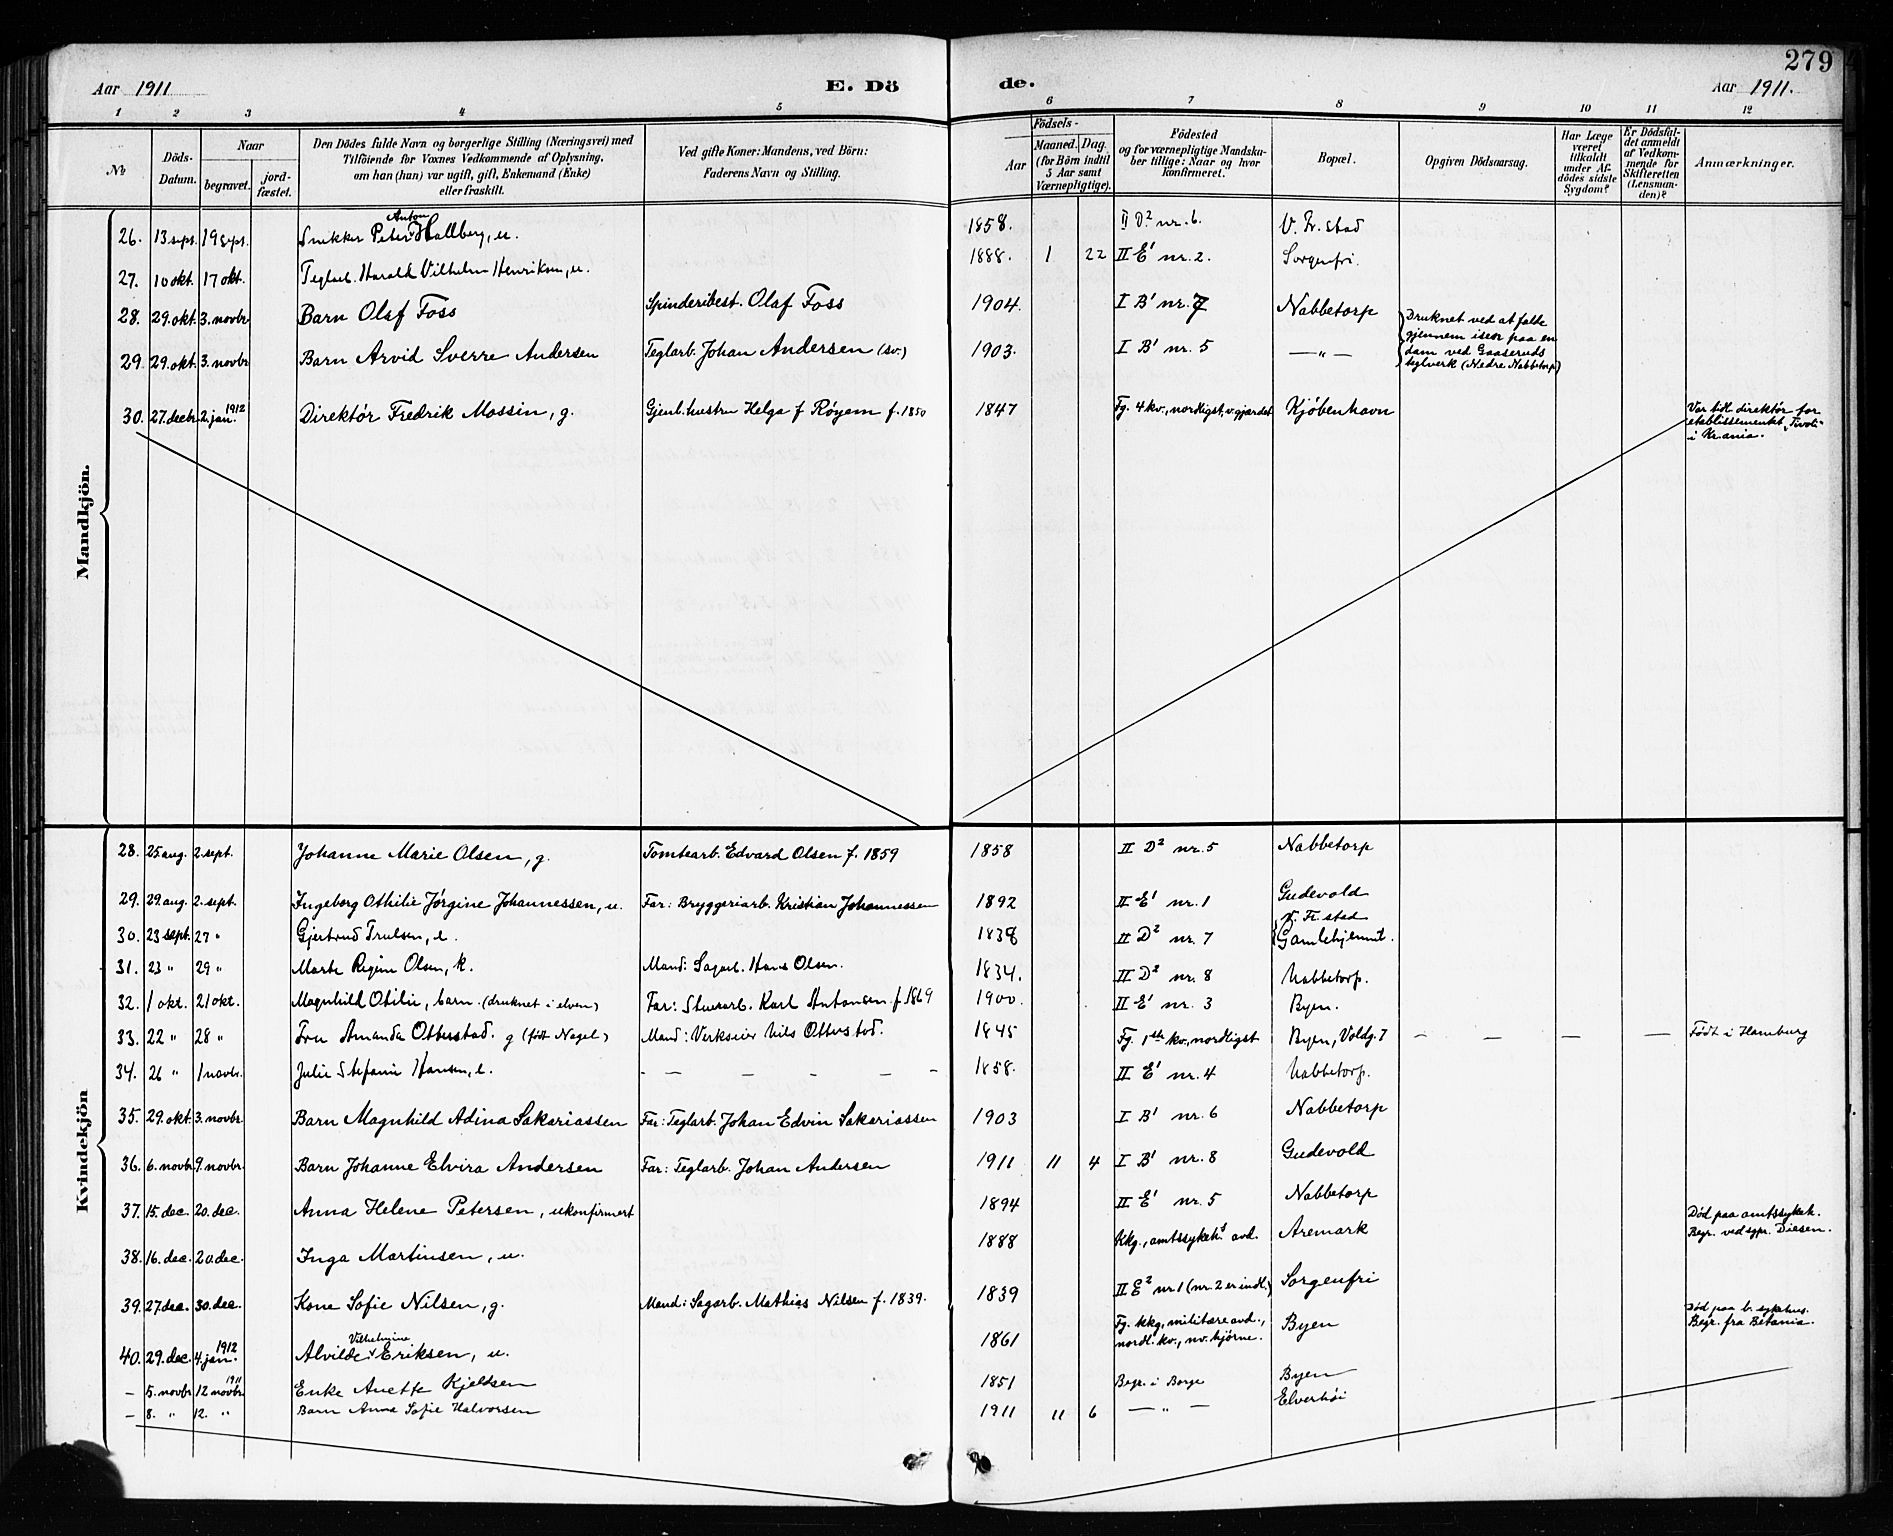 279
Aar 1911 E. Dö de. Aar 1911.
1 2 3 4 5 6 7 8 9 10 11 12
No
Döds-Datum.
Naar
begravet.
jord-fæstet.
Den Dödes fulde Navn og borgerlige Stilling (Næringsvei) med
Tilföiende for Voxnes Vedkommende af Oplysning,
om han (hun) var ugift, gift, Enkemand (Enke)
eller fraskilt.
Ved gifte Koner: Mandens, ved Börn:
Faderens Navn og Stilling.
Födsels-
Aar
Maaned. Dag
(for Börn indtil
5 Aar samt
Værnepligtige).
Födested
og for værnepligtige Mandska-
ber tillige: Naar og hvor
konfirmeret.
Bopæl.
Opgiven Dödsaarsag.
Har Læge
været
tilkaldt
under Af-
dödes sidste
Sygdom?
Er Dödsfal-
det anmeldt
af Vedkom-
mende for
Skifteretten
(Lensman-
den)?
Anmærkninger.
Mandkjön.
26. 13 sept. 19 sept. Snikker Peter Anton Hallberg, u. 1858. II D² nr. 6. V. Fr. stad
27. 10 okt. 17 okt. Teglarb. Harald Vilhelm Henriksen, u. 1888. 1 22 II E¹ nr. 2. Sorgenfri.
28. 29. okt. 3. novbr Barn Olaf Foss Spinderibest. Olaf Foss 1904. I B¹ nr. 7 Nabbetorp
29. 29. okt. 3. novbr Barn Arvid Sverre Andersen Teglarb. Johan Andersen (sv.) 1903. I B¹ nr. 5 — " —
Druknet ved at falde
gjennem isen paa en
dam ved Gaaseruds
teglverk (Nedre Nabbetorp)
30. 27. decbr. 2. jan. 1912 Direktör Fredrik Mossin, g. Gjenl. hustru Helga f Røyem f. 1850 1847 Fg. 4 kv., nordligst, v. gjærdet Kjöbenhavn
Var tidl. direktör for
etablissementet "Tivoli"
i Kr.ania.
Kvindekjön
28. 25 aug. 2. sept. Johanne Marie Olsen, g. Tomtearb. Edvard Olsen f. 1859 1858 II D² nr. 5 Nabbetorp
29. 29 aug. 2. sept. Ingeborg Othilie Jörgine Johannessen, u. Far: Bryggeriarb. Kristian Johannessen 1892 II E¹ nr. 1 Gudevold
30. 23 sept. 27 " Gjertrud Trulsen, e. 1838 II D² nr. 7 V. Fr. stad Gamlehjemmet.
31. 23 " 29 " Marte Regine Olsen, k. Mand: Sagarb. Hans Olsen. 1834. II D² nr. 8 Nabbetorp.
32. 1 okt. 21 okt. Magnhild Otilie, barn. (druknet i elven) Far: Stuerarb. Karl Antonsen f. 1869 1900. II E¹ nr. 3 Byen.
33. 22 " 28 " Fru Amanda Otterstad. g (født Nagel) Mand: Verkseier Nils Otterstad. 1845 Fg. 1ste kv., nordligst Byen, Voldg. 7 — — — — Født i Hamburg
34. 26 " 1 novbr. Julie Stefanie Hansen, e. — — — — — 1858. II E¹ nr. 4 Nabbetorp.
35. 29. okt. 3. novbr. Barn Magnhild Adina Sakariassen Far: Teglarb. Johan Edvin Sakariassen 1903 I B¹ nr. 6 Nabbetorp
36. 6. novbr. 9. novbr. Barn Johanne Elvira Andersen Far: Teglarb. Johan Andersen 1911 11 4 I B¹ nr. 8 Gudevold
37. 15. dec. 20. dec. Anna Helene Petersen, ukonfirmert 1894 II E¹ nr. 5 Nabbetorp
38. 16. dec. 20. dec. Inga Martinsen, u. 1888 Kkg., amtssykeh. avd. Aremark
Död paa amtssykeh.
Begr. ved sgpr. Diesen.
39. 27. dec. 30. dec. Kone Sofie Nilsen, g. Mand: Sagarb. Mathias Nilsen f. 1839. 1839 II E² nr. 1 (nr. 2 er indl.) Sorgenfri
40. 29. dec. 4. jan. 1912 Alvilde Vilhelmine Eriksen, u. 1861 Fg. kkg, militære avd., nordl. kv., nv. hjörne. Byen
Död paa b. sykehus.
Begr. fra Betania.
— 5. novbr 12 novbr 1911 Enke Anette Kjeldsen 1851 Begr. i Borge Byen
— 8. " 12. " Barn Anna Sofie Halvorsen 1911 11 6 — " — Elverhöi